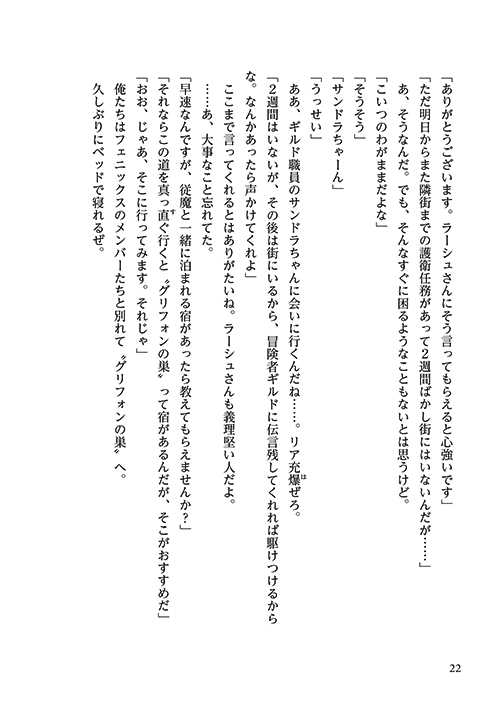 「ありがとうございます。ラーシュさんにそう言ってもらえると心強いです」
「ただ明日からまた隣街までの護衛任務があって２週間ばかし街にはいないんだが……」
あ、そうなんだ。でも、そんなすぐに困るようなこともないとは思うけど。
「こいつのわがままだよな」
「そうそう」
「サンドラちゃーん」
「うっせい」
ああ、ギルド職員のサンドラちゃんに会いに行くんだね……。リア充爆ぜろ。
「２週間はいないが、その後は街にいるから、冒険者ギルドに伝言残してくれれば駆けつけるから
な。なんかあったら声かけてくれよ」
ここまで言ってくれるとはありがたいね。ラーシュさんも義理堅い人だよ。
……あ、大事なこと忘れてた。
「早速なんですが、従魔と一緒に泊まれる宿があったら教えてもらえませんか？」
「それならこの道を真っ直ぐ行くと〝グリフォンの巣〟って宿があるんだが、そこがおすすめだ」
「おお、じゃあ、そこに行ってみます。それじゃ」
俺たちはフェニックスのメンバーたちと別れて〝グリフォンの巣〟へ。
久しぶりにベッドで寝れるぜ。
22